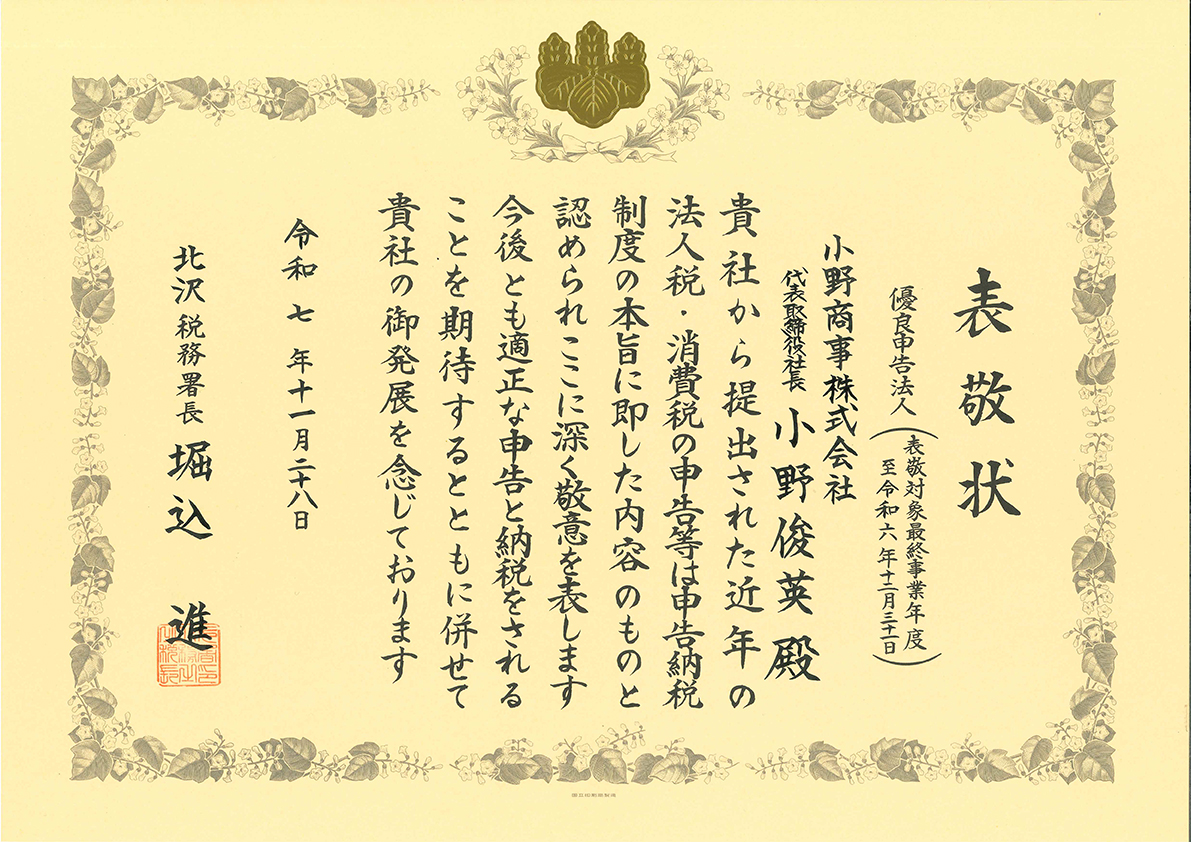 表敬状
優良申告法人
(表敬対象最終事業年度
至令和六年十二月三十一日)
小野商事株式会社
代表取締役社長 小野俊英殿
貴社から提出された近年の
法人税・消費税の申告等は申告納税
制度の本旨に即した内容のものと
認められここに深く敬意を表します
今後とも適正な申告と納税をされる
ことを期待するとともに併せて
貴社の御発展を念じております
令和七年十一月二十八日
北沢税務署長 堀込 進